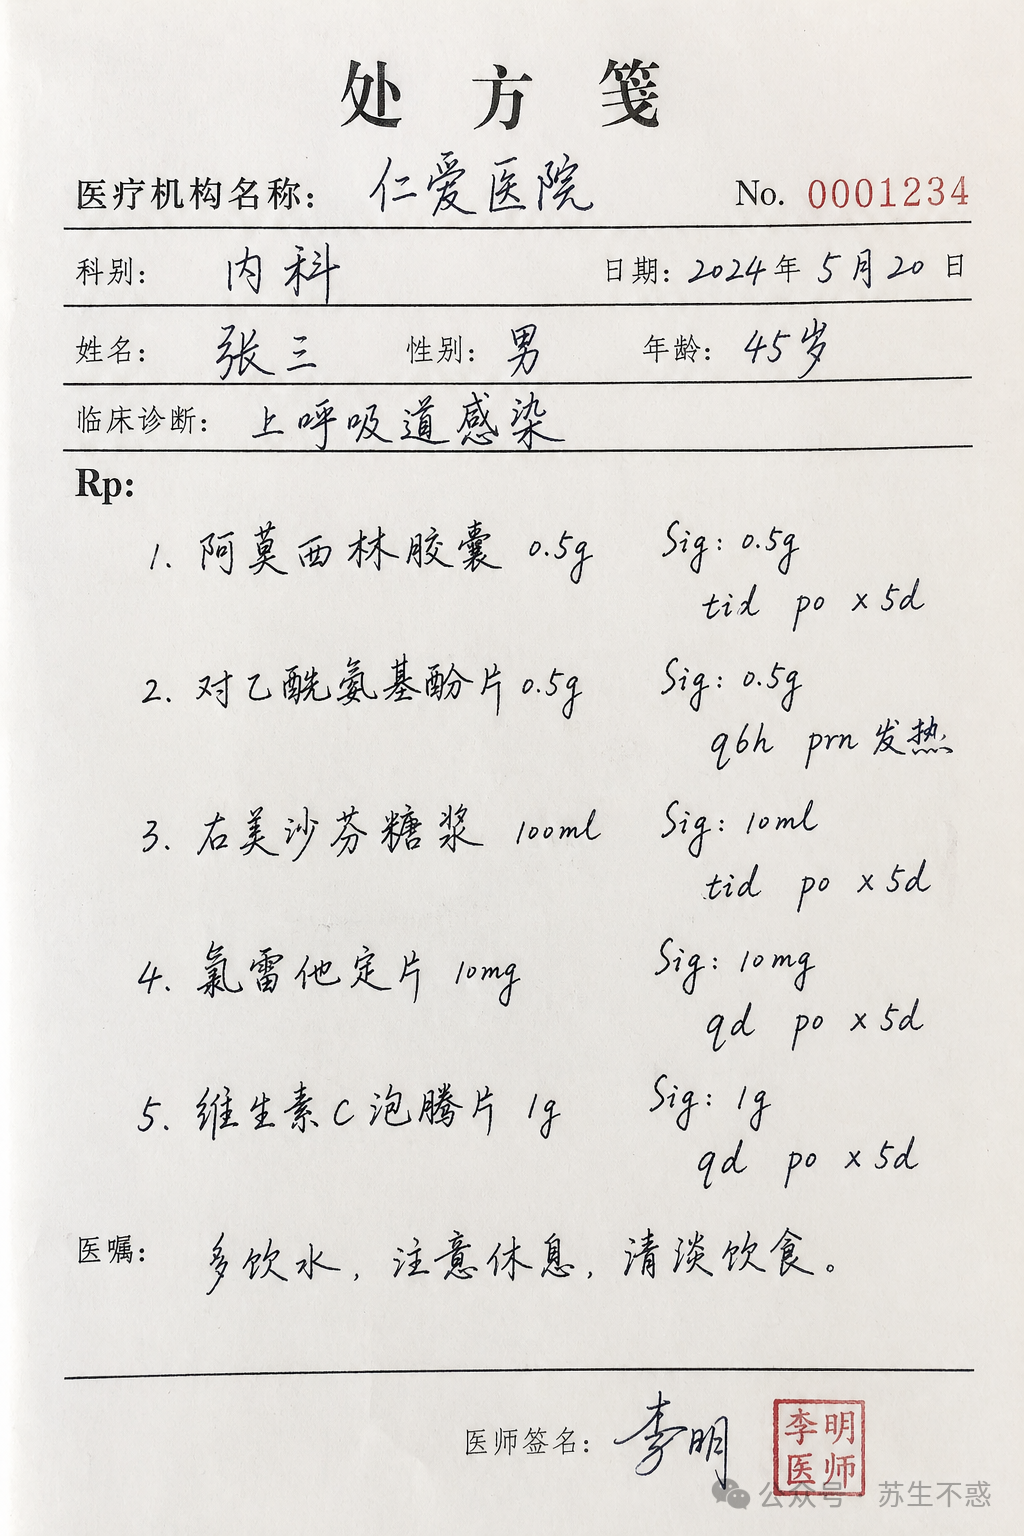 处方笺
医疗机构名称： 仁爱医院 No. 0001234
科别： 内科 日期：2024年5月20日
姓名： 张三 性别：男 年龄：45岁
临床诊断： 上呼吸道感染
Rp:
1. 阿莫西林胶囊 0.5g Sig: 0.5g
tid po x 5d
2. 对乙酰氨基酚片 0.5g Sig: 0.5g
q6h prn 发热
3. 右美沙芬糖浆 100ml Sig: 10ml
tid po x 5d
4. 氯雷他定片 10mg Sig: 10mg
qd po x 5d
5. 维生素C泡腾片 1g Sig: 1g
qd po x 5d
医嘱： 多饮水，注意休息，清淡饮食。
医师签名：李明
李明
医师
公众号 苏生不惑